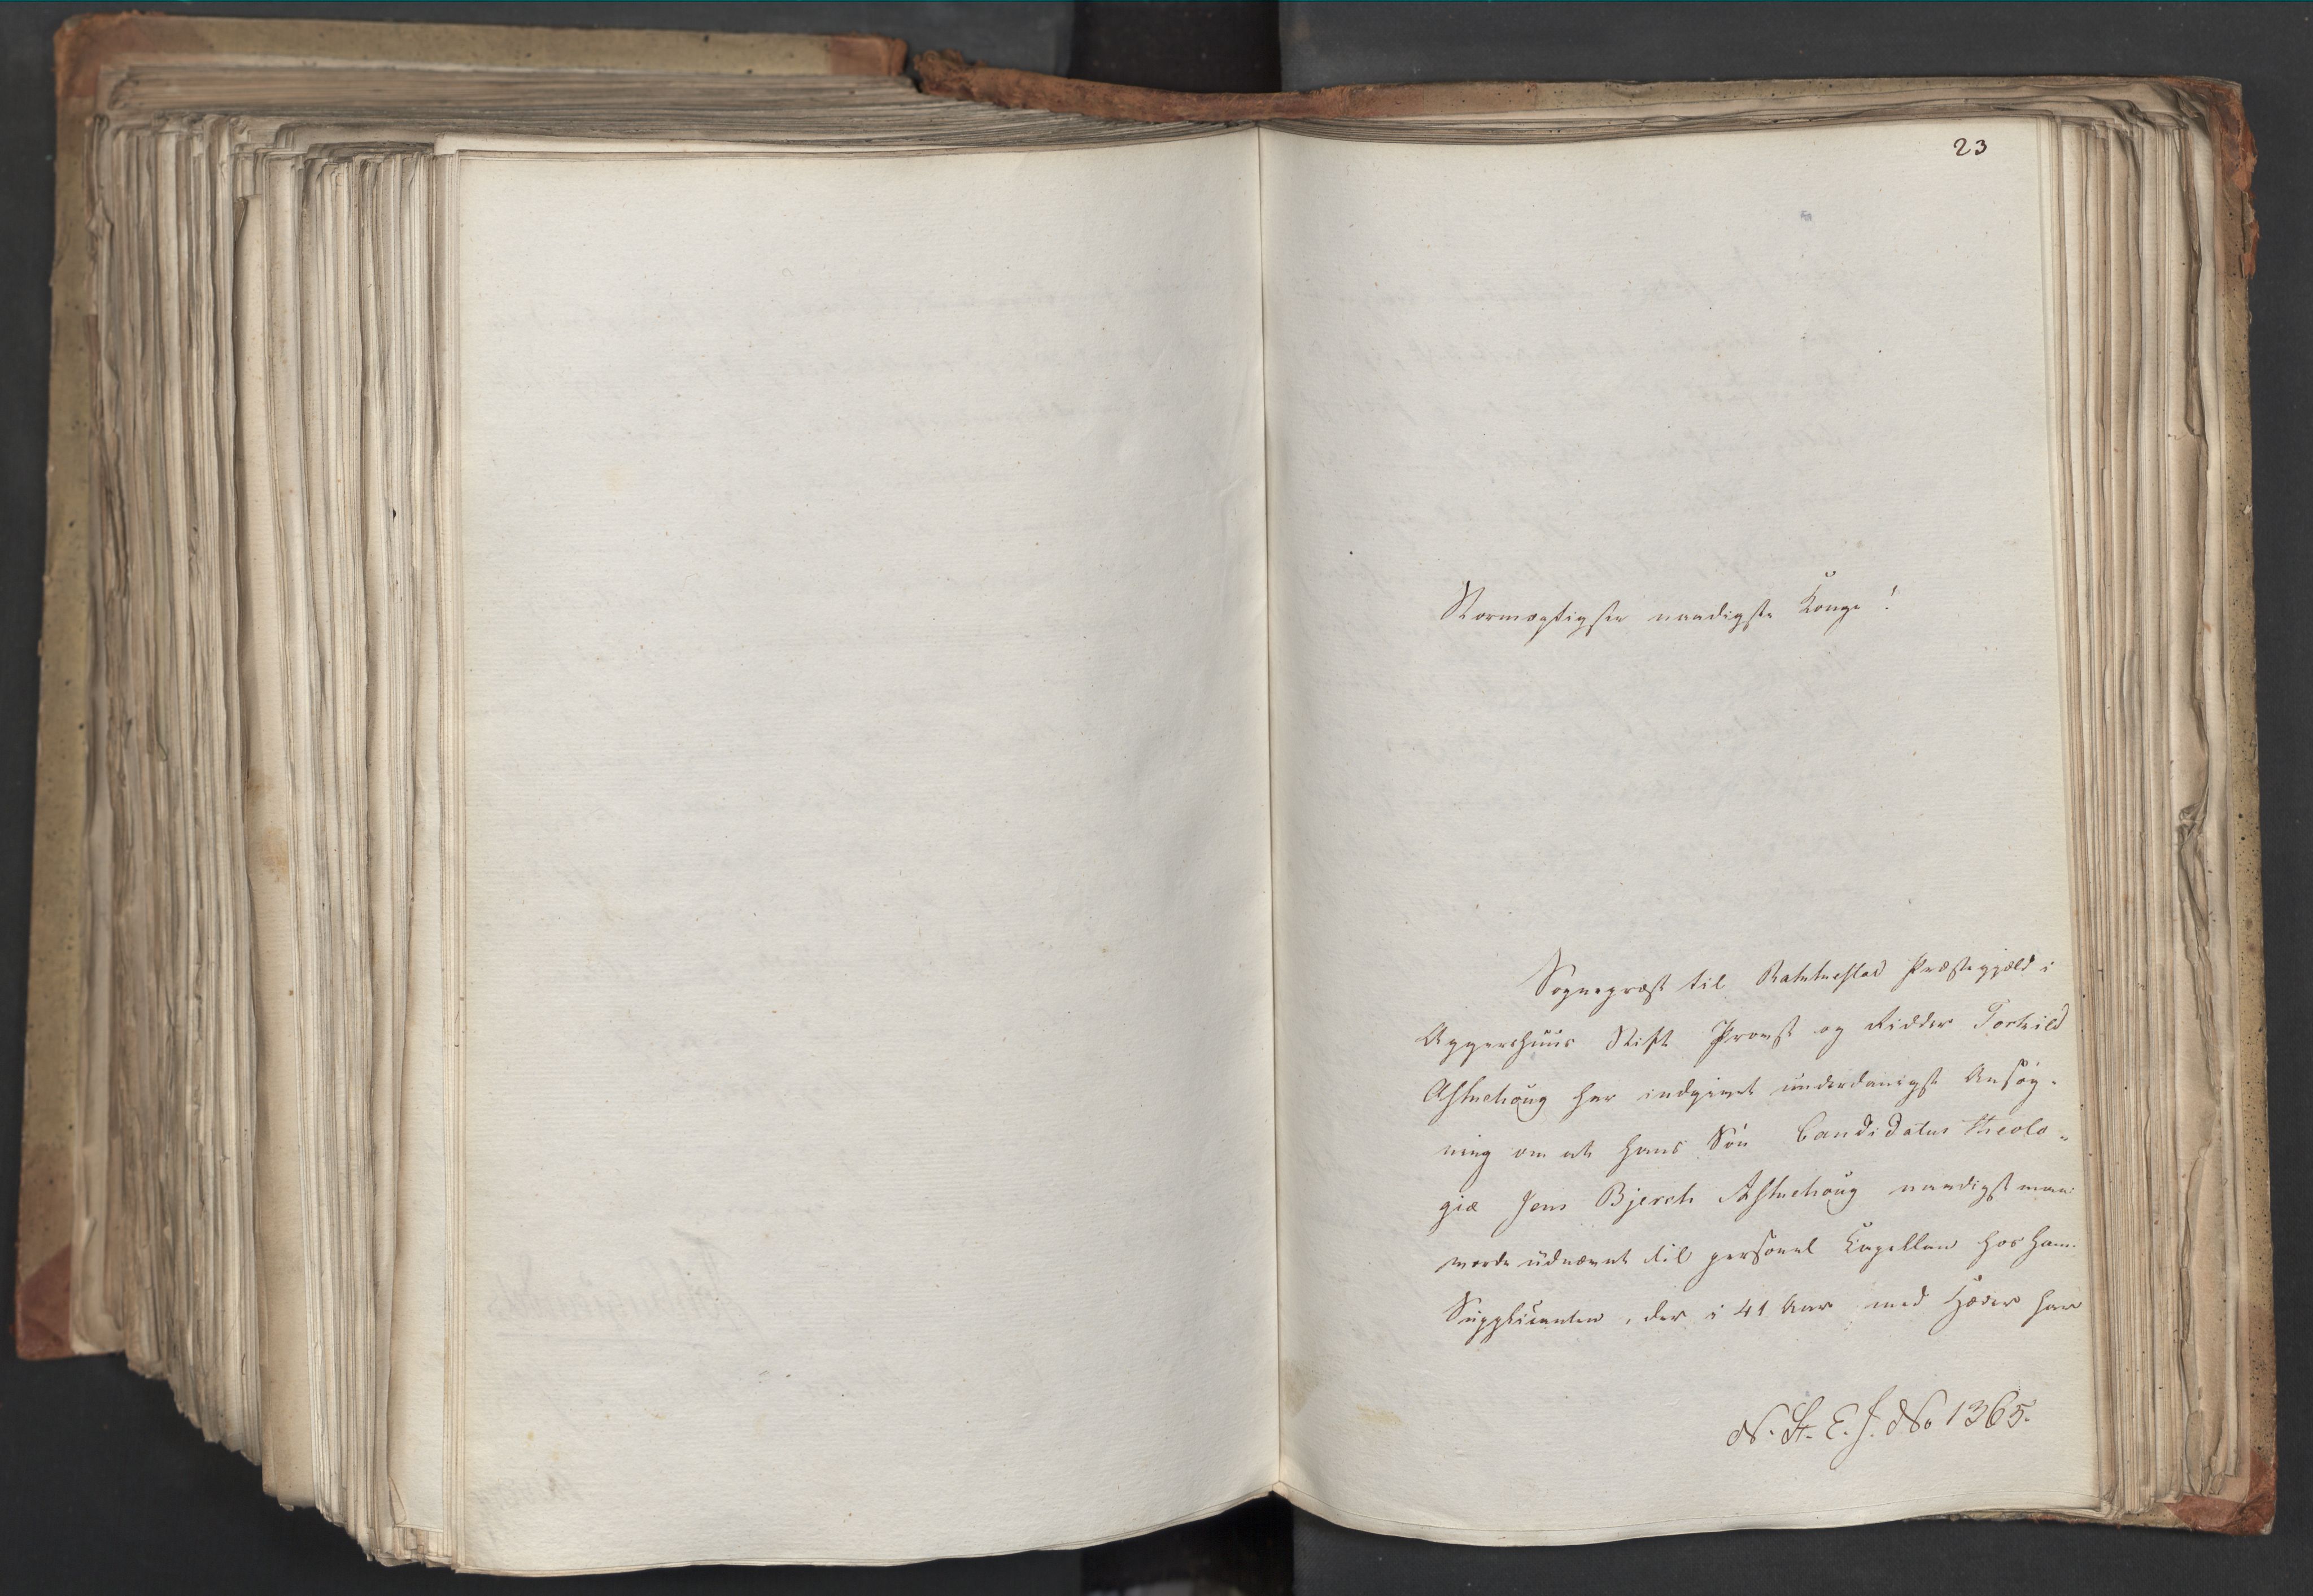 23
Stormægtigste naadigste Konge!
Sognepræst til Rakkestad Præstegjeld i
Aggershuus Stift Provst og Ridder Torkild
Askehoug har indgivet underdanigst Ansøg-
ning om at hans Søn Candidatus theolo-
giæ Jens Bjerch Askehoug naadigst maa
vorde udnævnt til personel Kapellan hos ham.
Supplicanten, der i 41 Aar med Hæder har
N. St. E. J. No 1365.